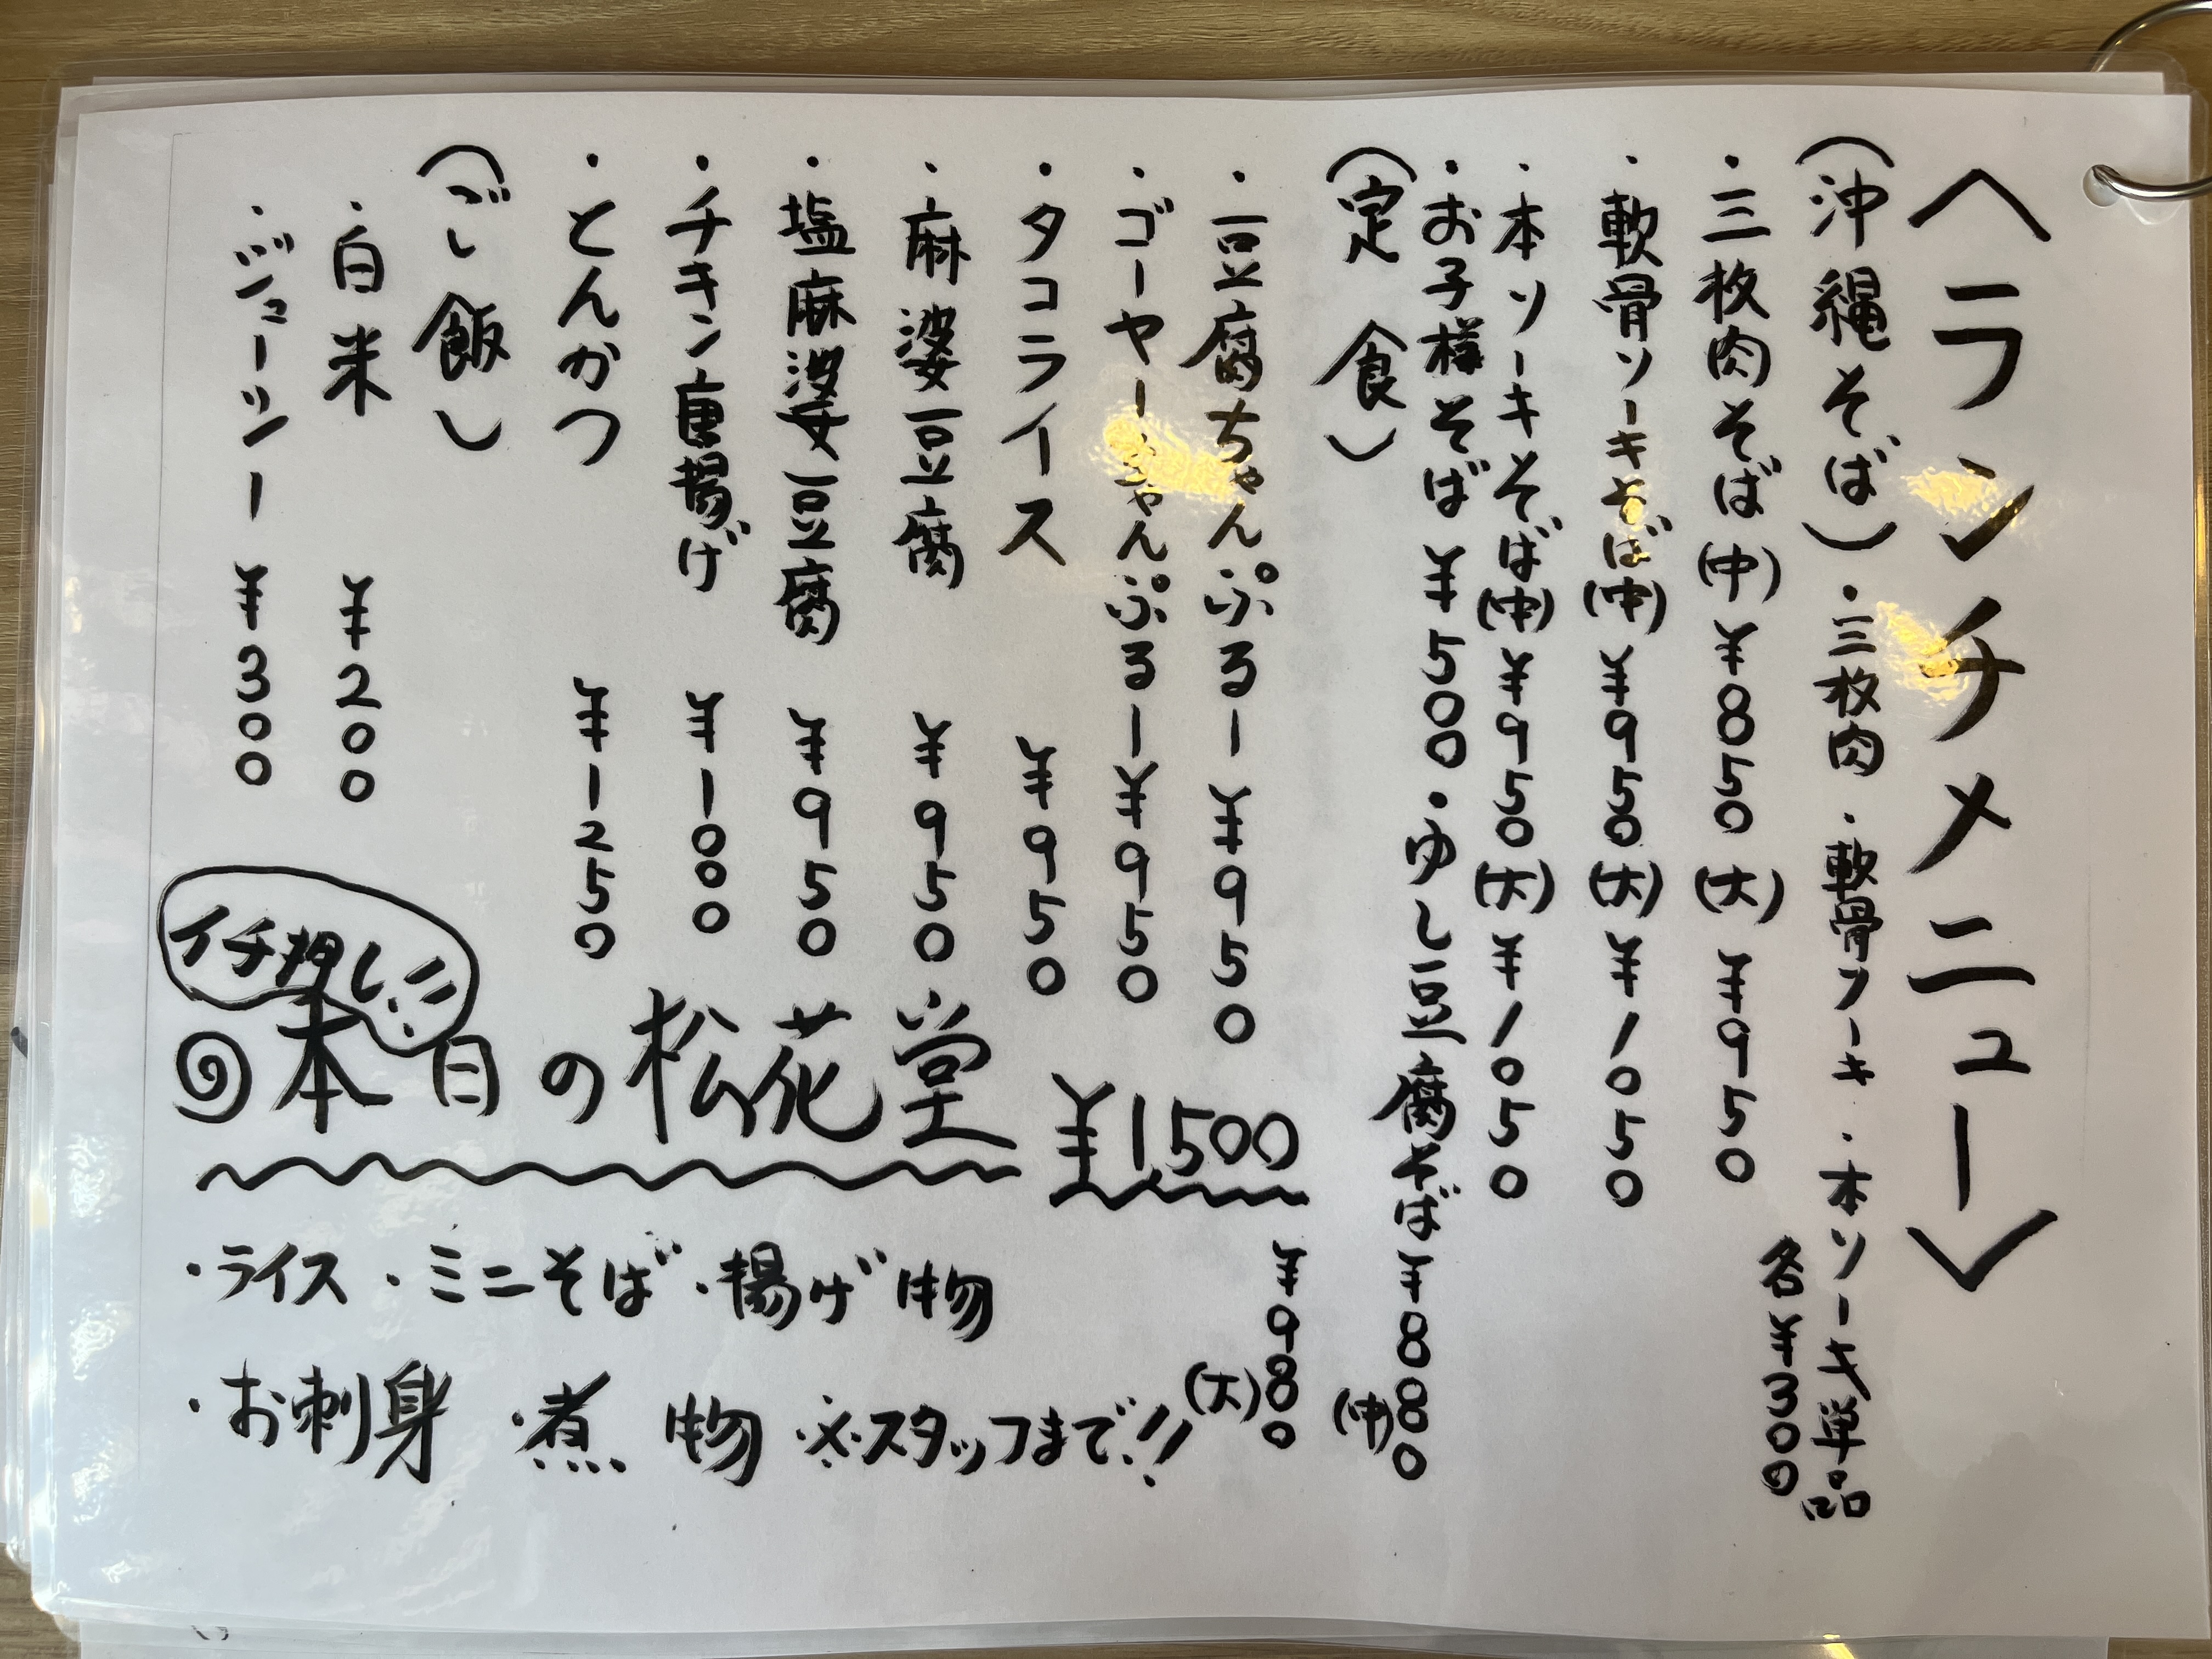 〈ランチメニュー〉
(沖縄そば)・三枚肉・軟骨ソーキ・本ソーキ単品
各¥300
・三枚肉そば(中)¥850(大)¥950
・軟骨ソーキそば(中)¥950(大)¥1050
・本ソーキそば(中)¥950(大)¥1050
・お子様そば¥500・ゆし豆腐そば¥880
(中)
¥980
(大)
(定食)
・豆腐ちゃんぷるー¥950
・ゴーヤーちゃんぷるー¥950
・タコライス¥950
・麻婆豆腐¥950
・塩麻婆豆腐¥950
・チキン唐揚げ¥1000
・とんかつ¥1250
(ご飯)
・白米¥200
・ジューシー¥300
イチ押し!!
◎本日の松花堂 ¥1,500
・ライス・ミニそば・揚げ物
・お刺身・煮物※スタッフまで!!